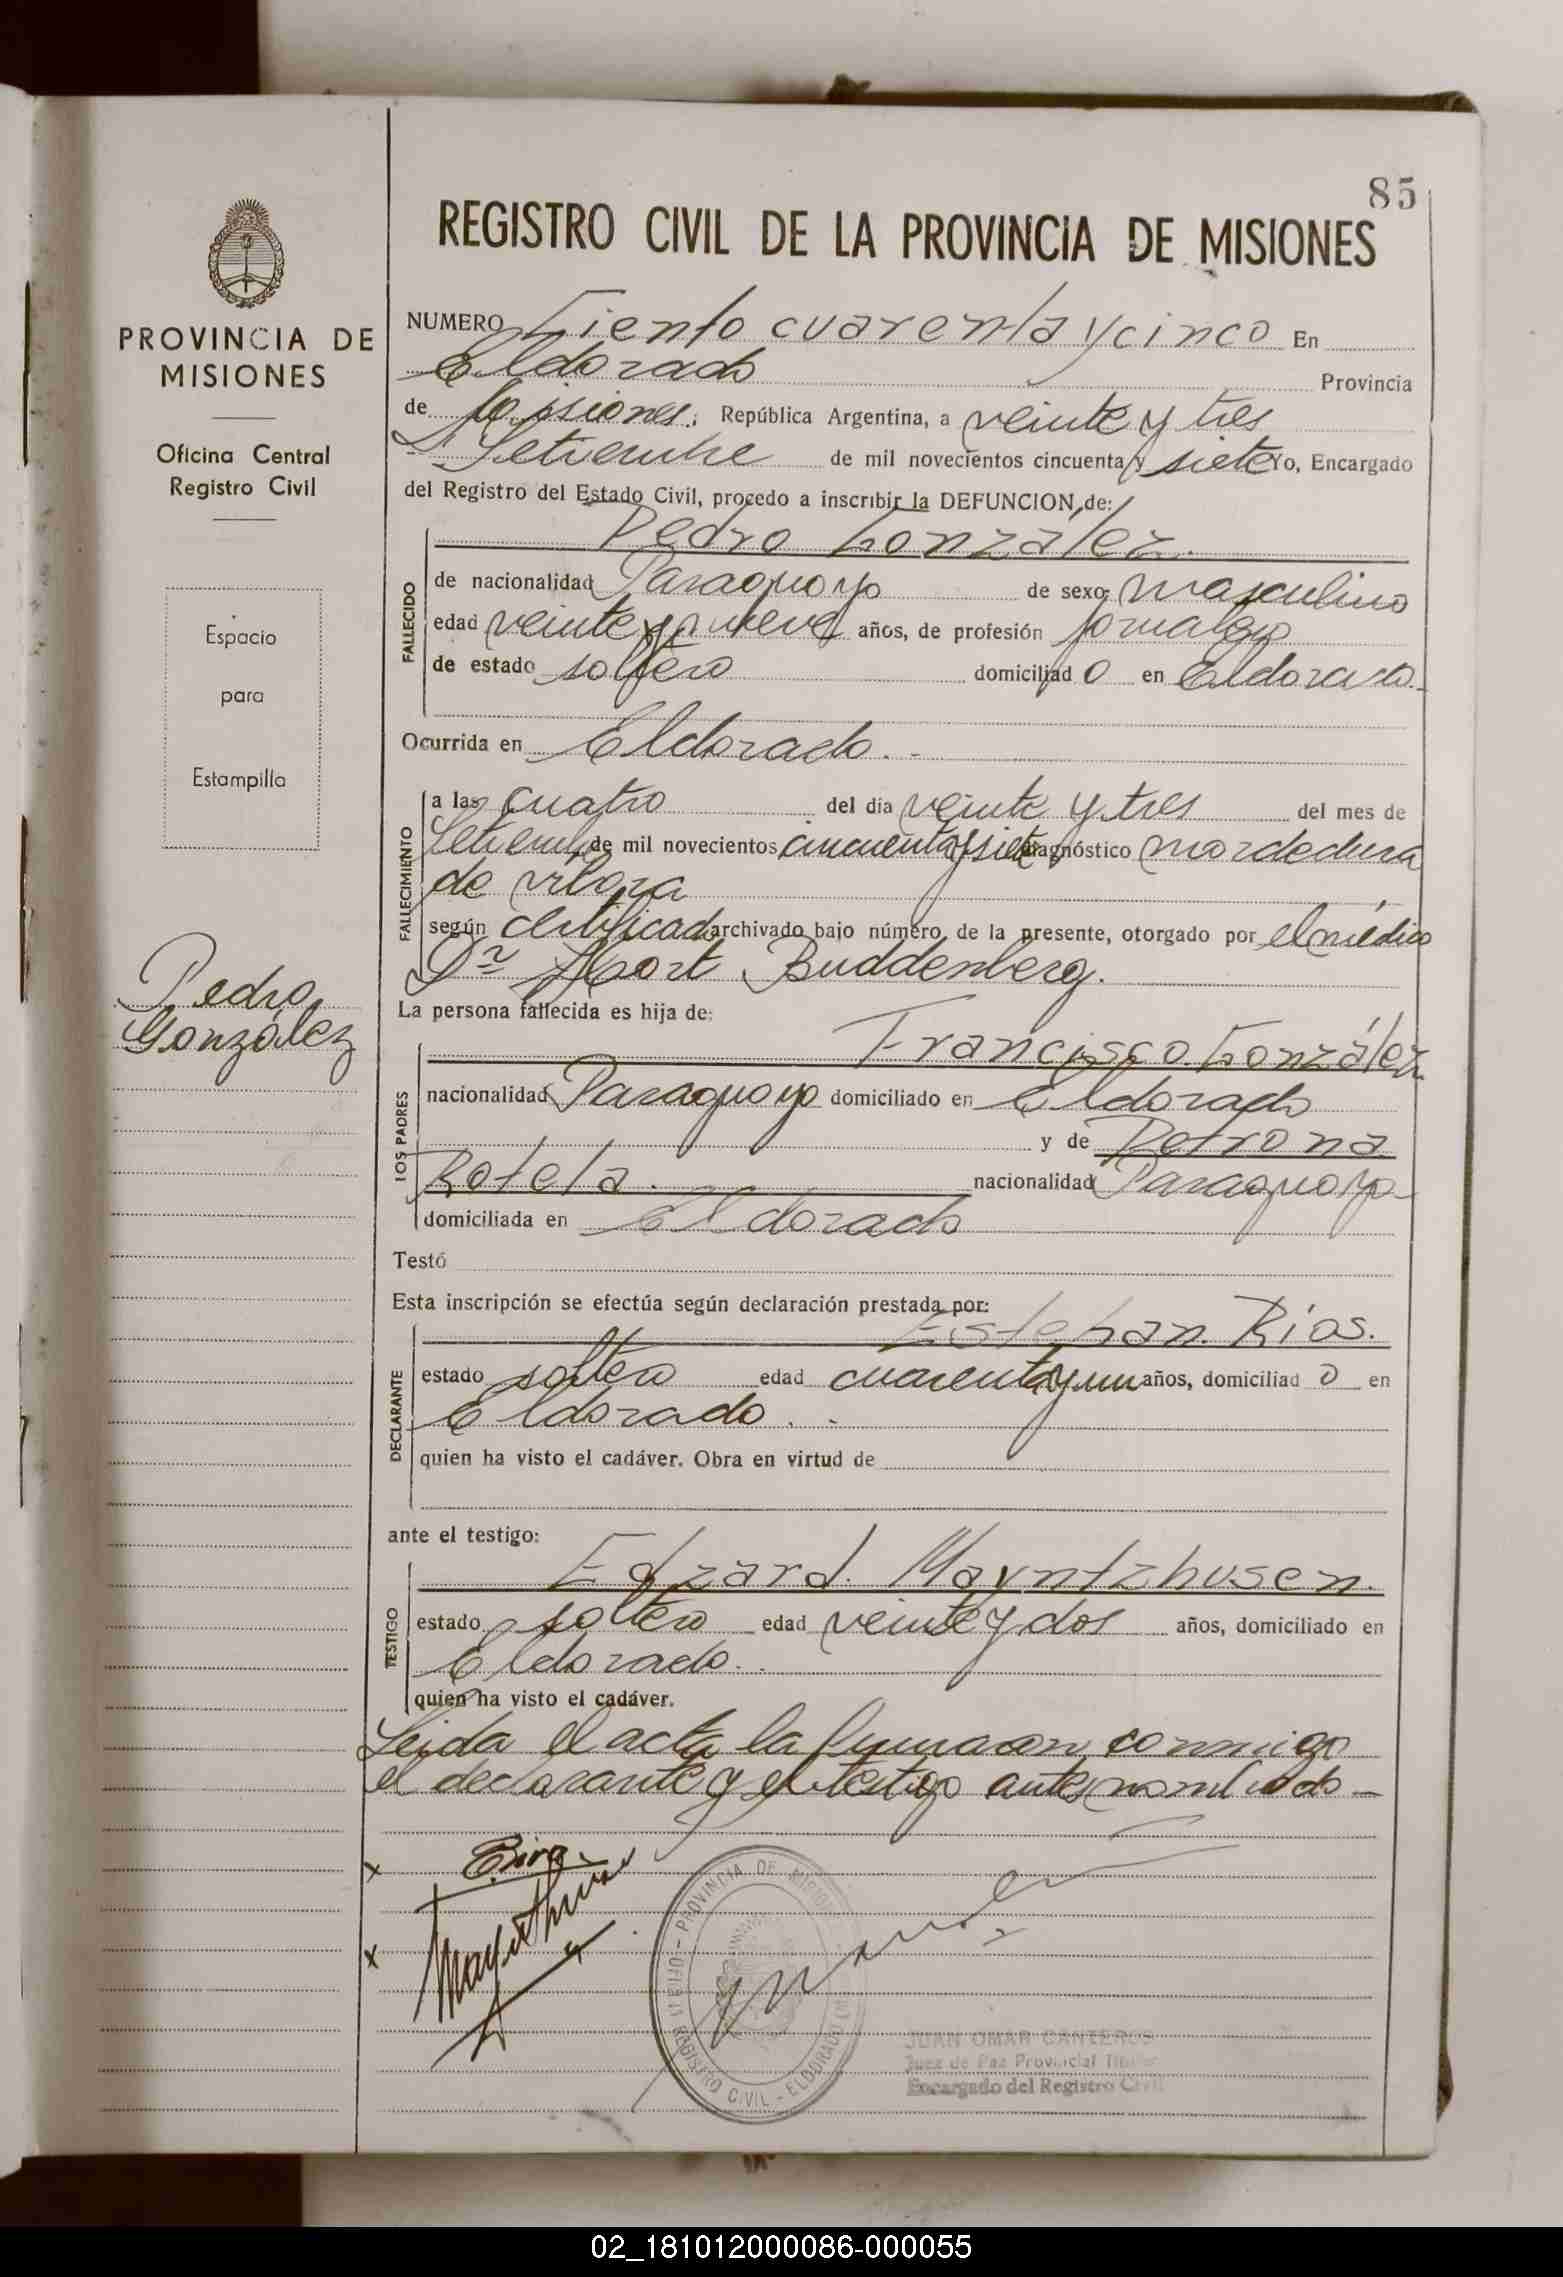 85
REGISTRO CIVIL DE LA PROVINCIA DE MISIONES
PROVINCIA DE
MISIONES
Oficina Central
Registro Civil
Espacio
para
Estampilla
Pedro
González
NUMERO Ciento cuarenta y cinco En
Eldorado Provincia
de Misiones, República Argentina, a veinte y tres
Setiembre de mil novecientos cincuenta y siete Yo, Encargado
del Registro del Estado Civil, procedo a inscribir la DEFUNCION de:
Pedro González.
FALLECIDO
de nacionalidad Paraguayo de sexo masculino
edad veinte y nueve años, de profesión jornalero
de estado soltero domiciliad o en Eldorado.
Ocurrida en Eldorado.
FALLECIMIENTO
a las cuatro del día veinte y tres del mes de
Setiembre de mil novecientos cincuenta y siete diagnóstico mordedura
de víbora
según certificado archivado bajo número de la presente, otorgado por el médico
Dr Horst Buddenberg.
La persona fallecida es hija de:
LOS PADRES
Francisco González
nacionalidad Paraguayo domiciliado en Eldorado
y de Petrona
Rotela. nacionalidad Paraguaya
domiciliada en Eldorado
Testó
Esta inscripción se efectúa según declaración prestada por:
DECLARANTE
Esteban Ríos.
estado soltero edad cuarenta y un años, domiciliad o en
Eldorado.
quien ha visto el cadáver. Obra en virtud de
ante el testigo:
TESTIGO
Edzard Mayntzhusen.
estado soltero edad veinte y dos años, domiciliado en
Eldorado.
quien ha visto el cadáver.
Leida el acta la firmaron conmigo
el declarante y el testigo antes nombrado
x
x
PROVINCIA DE MISIONES
REGISTRO CIVIL - ELDORADO
JUAN OMAR CANTEROS
Juez de Paz Provincial Titular
Encargado del Registro Civil
02_181012000086-000055